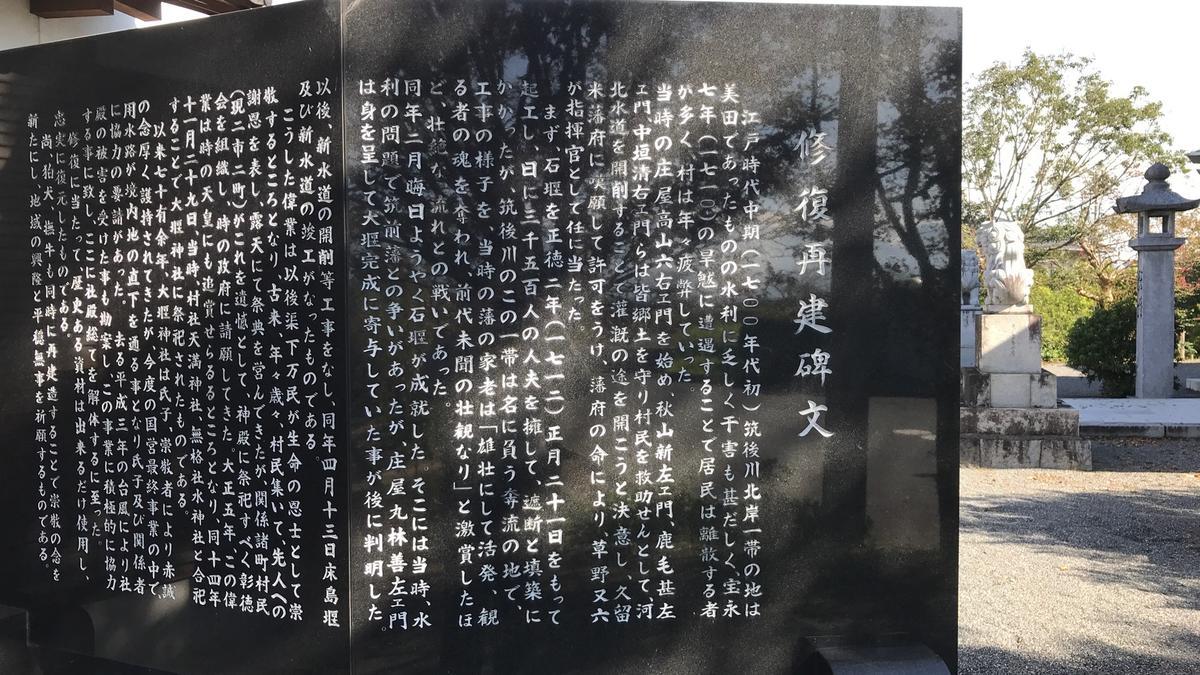 修復再建碑文
江戸時代中期（一七〇〇年代初）筑後川北岸一帯の地は
美田であったものの水利に乏しく干害も甚だしく、宝永
七年（一七一〇）の旱魃に遭遇することで居民は離散する者
が多く、村は年々疲弊していった。
当時の庄屋高山六右ヱ門を始め、秋山新左ヱ門、鹿毛甚左
ヱ門、中垣清右ヱ門らは皆郷土を守り村民を救助せんとして、河
北水道を開削することで灌漑の途を開こうと決意し、久留
米藩府に嘆願して許可をうけ、藩府の命により、草野又六
が指揮官として任に当たった。
まず、石堰を正徳二年（一七一二）正月二十一日をもって
起工し、日に三千五百人の人夫を擁して、遮断と填築に
かかったが、筑後川のこの一帯は名に負う奔流の地で、
工事の様子を、当時の藩の家老は「雄壮にして活発、観
る者の魂を奪われ、前代未聞の壮観なり」と激賞したほ
ど、壮絶な流れとの戦いであった。
同年二月晦日ようやく石堰が成就した。そこには当時、水
利の問題で筑前藩との争いがあったが、庄屋丸林善左ヱ門
は身を呈して大堰完成に寄与していた事が後に判明した。
以後、新水道の開削等工事をなし、同年四月十三日床島堰
及び新水道の竣工がなったものである。
こうした偉業は以後渠下万民が生命の恩士として崇
敬するところとなり、古来、年々歳々、村民集いて、先人への
謝恩を表し、露天にて祭典を営んできたが、関係諸町村民
（現二市二町）がこれを遺憾として、神殿に祭祀すべく彰徳
会を組織し、時の政府に請願してきた。大正五年、この偉
業は時の天皇にも追賞せられるところとなり、同十四年
十一月二十九日、当時、村社天満神社、無格社水神社と合祀
することで大堰神社に祭祀されたものである。
以来七十有余年、大堰神社は氏子、崇敬者により赤誠
の念厚く護持されてきたが、今度の国営最終事業の中で、
用水路が境内地の直下を通る事となり氏子及び関係者
に協力の要請があった。去る平成三年の台風により社
殿の被害を受けた事も勘案し、この事業に積極的に協力
する事に致し、ここに社殿総てを解体するに至った。
修復に当たって、歴史ある資材は出来るだけ使用し、
忠実に復元したものである。
尚、狛犬、撫牛も同時に再建造することで崇敬の念を
新たにし、地域の興隆と平穏無事を祈願するものである